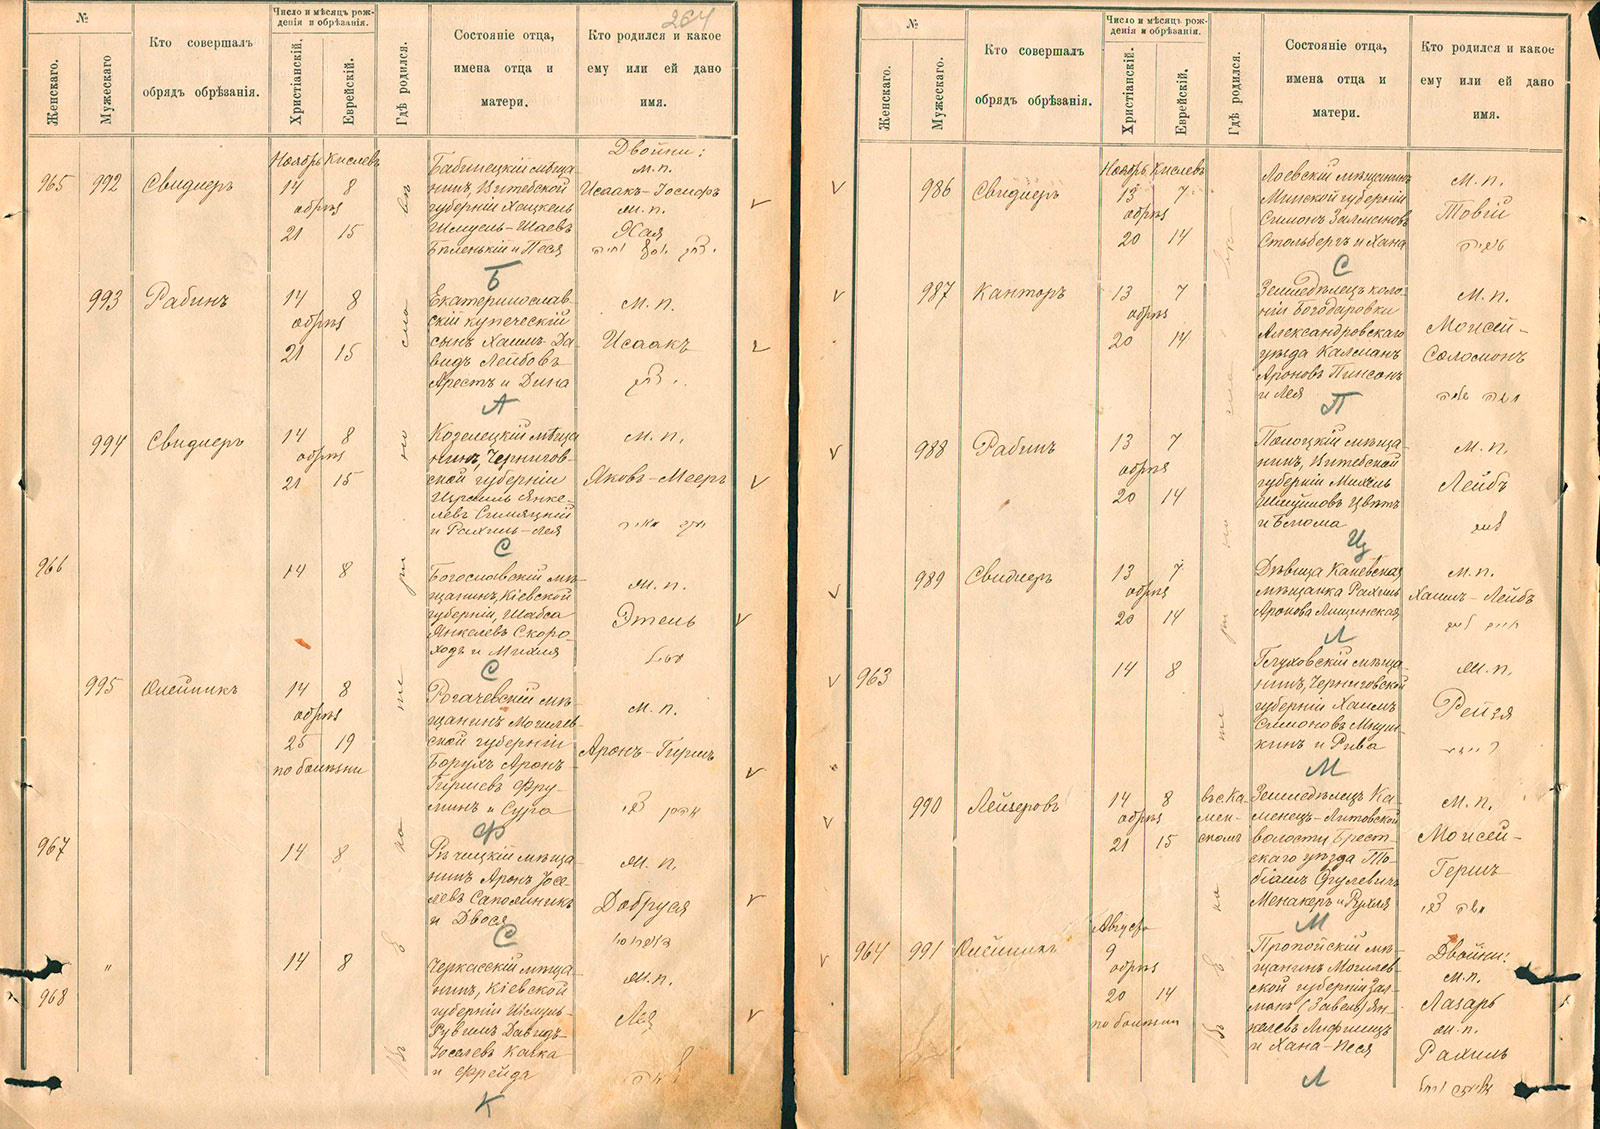 264
№
Женскаго.
Мужескаго
Кто совершалъ
обрядъ обрѣзанія.
Число и мѣсяцъ рож-
денія и обрѣзанія.
Христіанскій.
Еврейскій.
Гдѣ родился.
Состояніе отца,
имена отца и
матери.
Кто родился и какое
ему или ей дано
имя.
Ноябрь Кислевъ
965 992 Свидлеръ 14 8
обрѣз
21 15
Бабинецкій мѣща
нинъ, Витебской
губерніи Хацкель
Шмуель-Шаевъ
Бѣленькій и Песя
Двойни:
м.п.
Исаакъ-Іосифъ
м.п.
Хая
Б
993 Рабинъ 14 8
обрѣз
21 15
Екатеринослав-
скій купеческій
сынъ Хаимъ-Да-
видъ Лейбовъ
Арестъ и Дина
м.п.
Исаакъ
А
994 Свидлеръ 14 8
обрѣз
21 15
Козелецкій мѣща
нинъ, Чернигов-
ской губерніи
Израиль Янке-
левъ Симяцкій
и Рахиль-Лея
м.п.
Яковъ-Мееръ
С
966 14 8
Богославскій мѣ-
щанинъ, Кіевской
губерніи, Шабса
Янкелевъ Скоро-
ходъ и Михля
м.п.
Этель
С
995 Олейникъ 14 8
обрѣз
25 19
по болѣзни
Рогачевскій мѣ-
щанинъ Могилев-
ской губерніи
Борухъ Аронъ-
Гиршевъ Фру-
минъ и Сура
м.п.
Аронъ-Гиршъ
Ф
967 14 8
Рѣчицкій мѣща
нинъ Аронъ Іосе-
левъ Саполиникъ
и Двося
м.п.
Добруся
С
968 14 8
Черкасскій мѣща
нинъ, Кіевской
губерніи Шмуль-
Рувимъ Давидъ-
Іоселевъ Кавка
и Фрейда
м.п.
Лея
К
№
Женскаго.
Мужескаго.
Кто совершалъ
обрядъ обрѣзанія.
Число и мѣсяцъ рож-
денія и обрѣзанія.
Христіанскій.
Еврейскій.
Гдѣ родился.
Состояніе отца,
имена отца и
матери.
Кто родился и какое
ему или ей дано
имя.
Ноябрь Кислевъ
986 Свидлеръ 13 7
обрѣз
20 14
Лоевскій мѣщанинъ
Минской губерніи
Симонъ Залмановъ
Стольбергъ и Хана
м.п.
Товій
С
987 Канторъ 13 7
обрѣз
20 14
Земледѣлецъ коло-
ніи Богодаровки
Александровскаго
уѣзда Калманъ
Ароновъ Пинсонъ
и Лея
м.п.
Моисей-
Соломонъ
П
988 Рабинъ 13 7
обрѣз
20 14
Полоцкій мѣща-
нинъ, Витебской
губерніи
Цвѣтъ
и Блюма
м.п.
Лейбъ
Ц
989 Свидлеръ 13 7
обрѣз
20 14
Дѣвица Каневская
мѣщанка Рахиль
Аронова Лищинская
м.п.
Хаимъ-Лейбъ
Л
963 14 8
Глуховскій мѣща-
нинъ, Черниговской
губерніи Хаимъ
Симоновъ Мнуш-
кинъ и Рива
м.п.
Рейзя
М
990 Лейзеровъ 14 8
обрѣз
21 15
въ с. Ка-
мен-
скомъ
Земледѣлецъ Ка-
менецъ-Литовской
волости Брест-
скаго уѣзда То-
біашъ Сруlевичъ
Менакеръ и Рухля
м.п.
Моисей-
Гершъ
М
Августъ
964 991 Олейникъ 9
обрѣз
20 14
по болѣзни
Пропойскій мѣ-
щанинъ Могилев-
ской губерніи Зал-
манъ (Завель) Ян-
келевъ Лифшицъ
и Хана-Песя
Двойни:
м.п.
Лазарь
м.п.
Рахиль
Л